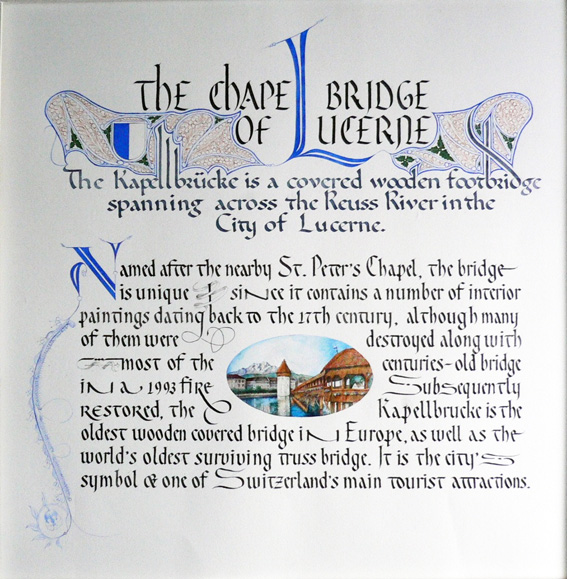 THE CHAPEL BRIDGE
OF LUCERNE
The Kapellbrücke is a covered wooden footbridge
spanning across the Reuss River in the
City of Lucerne.
Named after the nearby St. Peter's Chapel, the bridge
is unique since it contains a number of interior
paintings dating back to the 17th century, although many
of them were destroyed along with
most of the centuries-old bridge
in a 1993 fire Subsequently
RESTORED, the Kapellbrucke is the
oldest wooden covered bridge in Europe, as well as the
world's oldest surviving truss bridge. It is the city's
symbol & one of Switzerland's main tourist attractions.